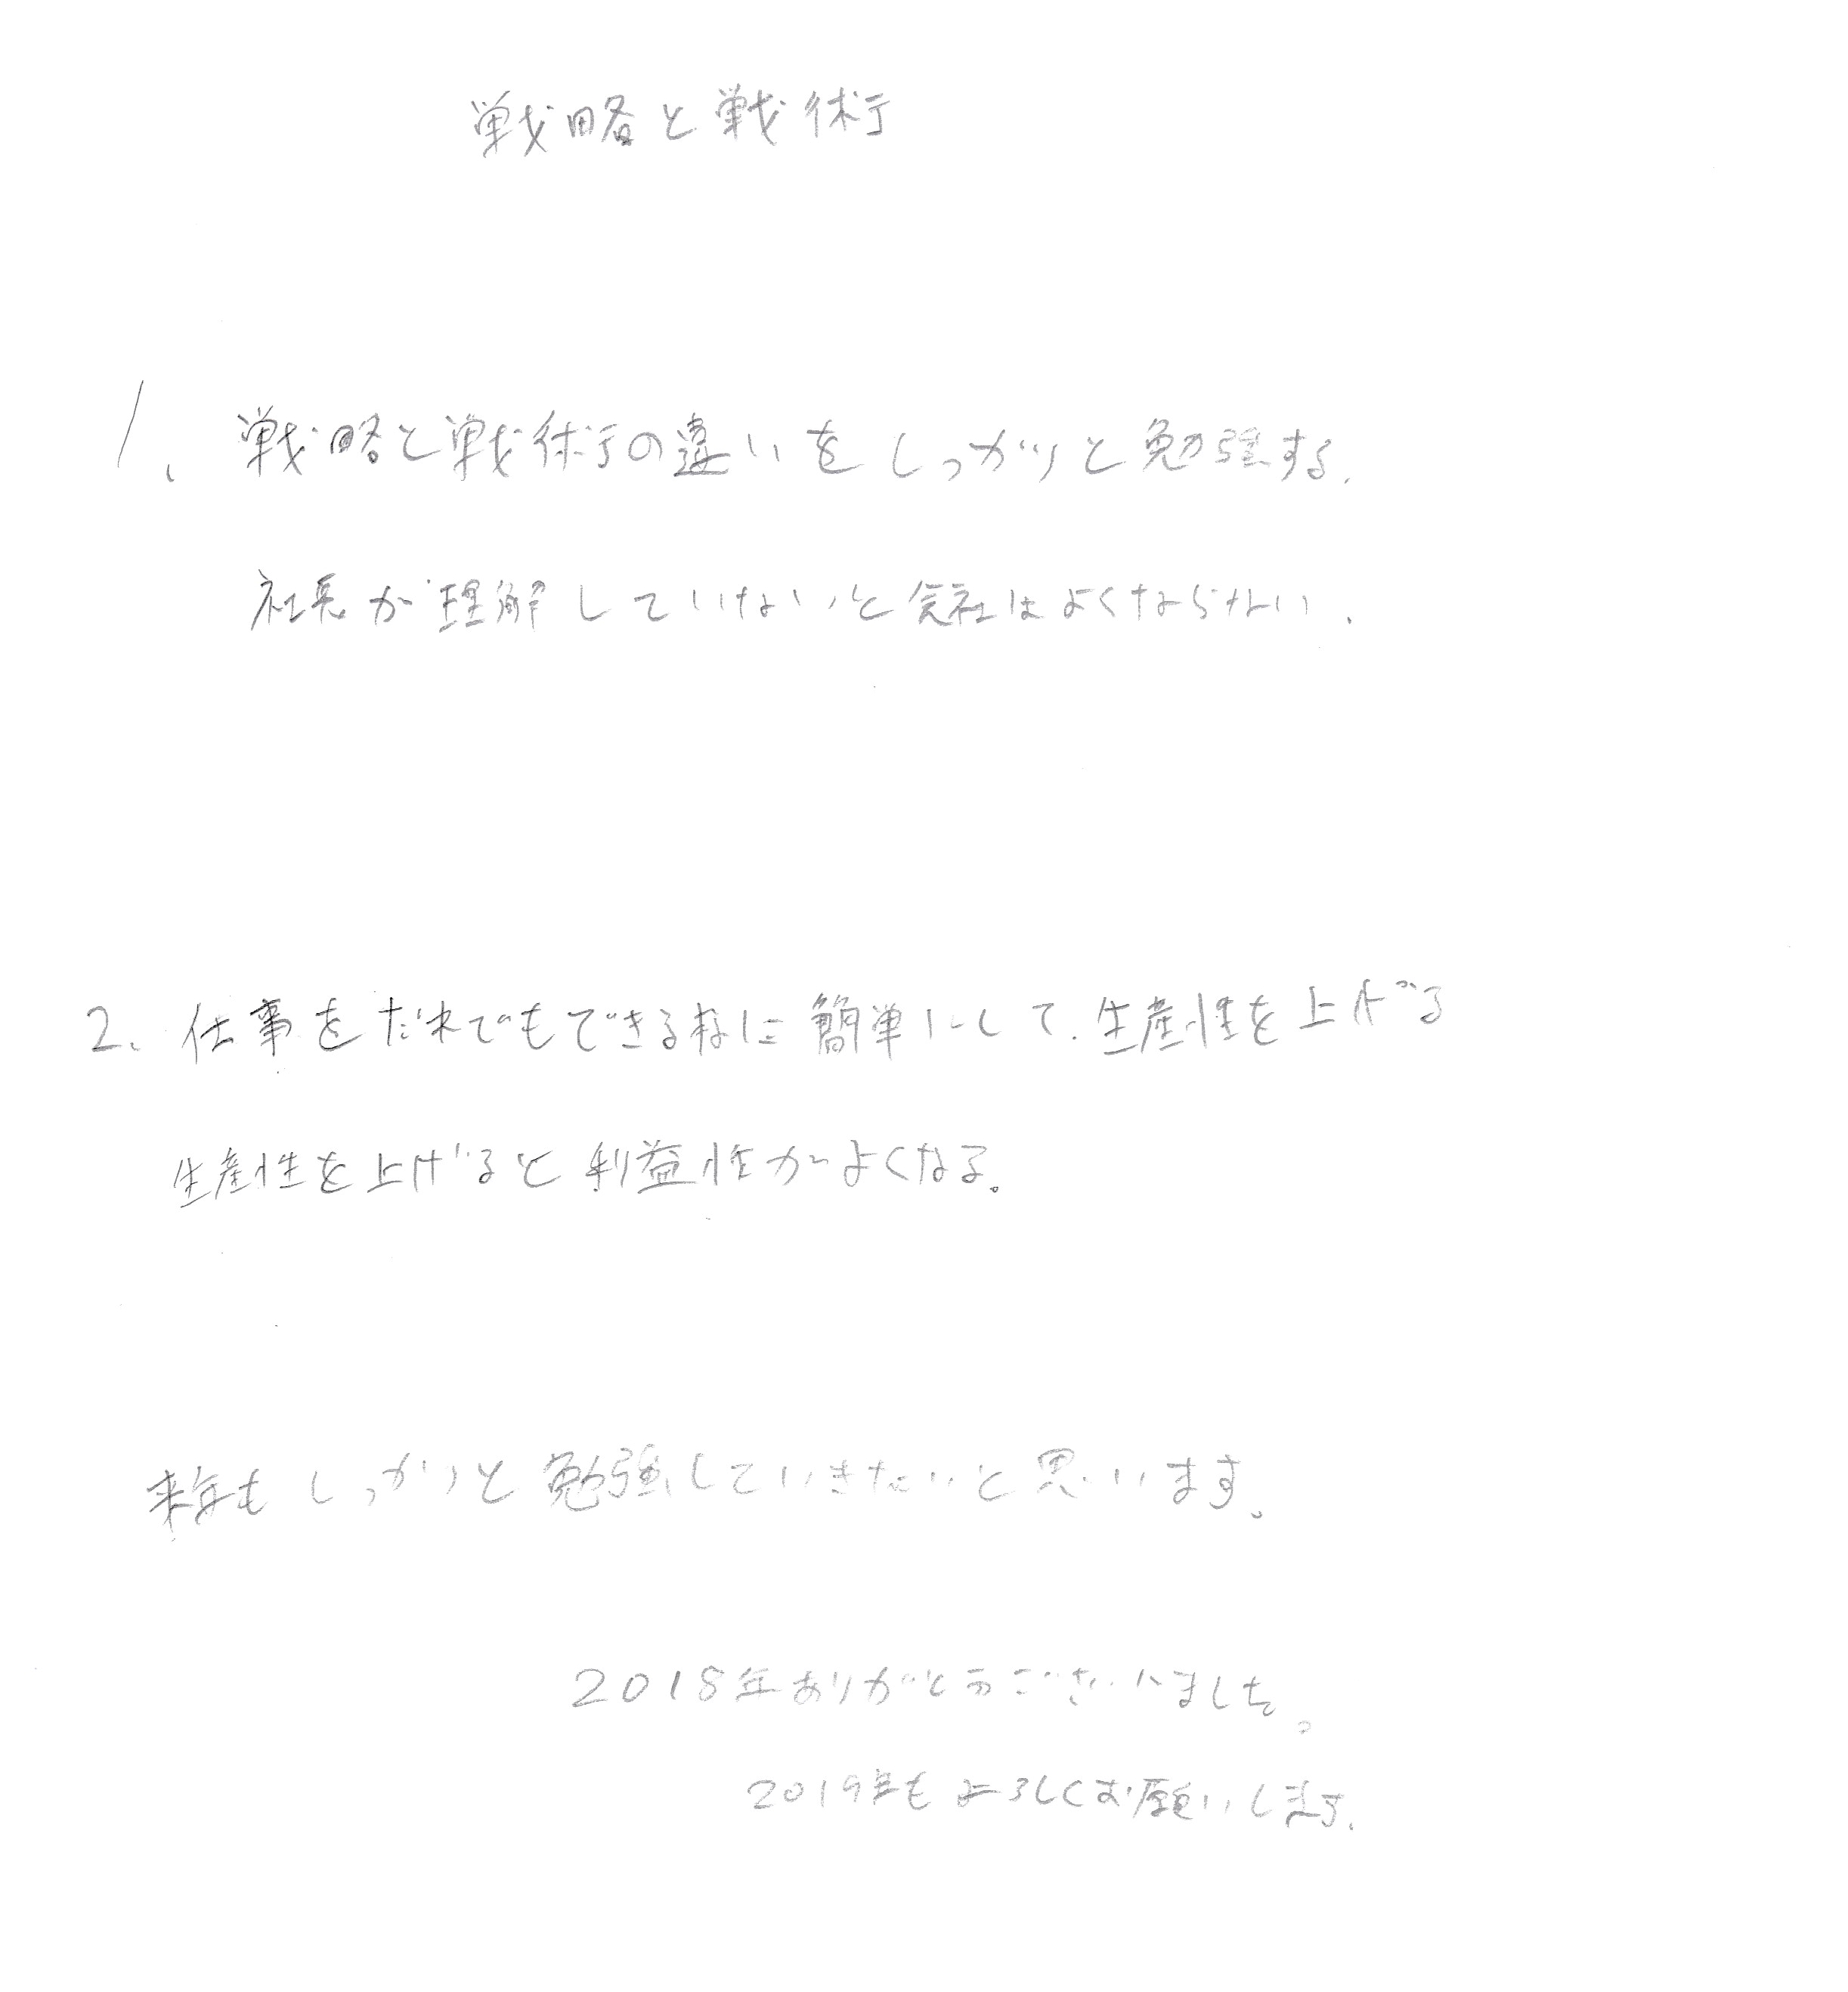 戦略と戦術
1、戦略と戦術の違いをしっかりと勉強する、
社長が理解していないと会社はよくならない、
2、仕事をだれでもできる様に簡単にして、生産性を上げる
生産性を上げると利益性がよくなる。
来年もしっかりと勉強していきたいと思います。
2018年ありがとうございました。
2019年もよろしくお願いします、